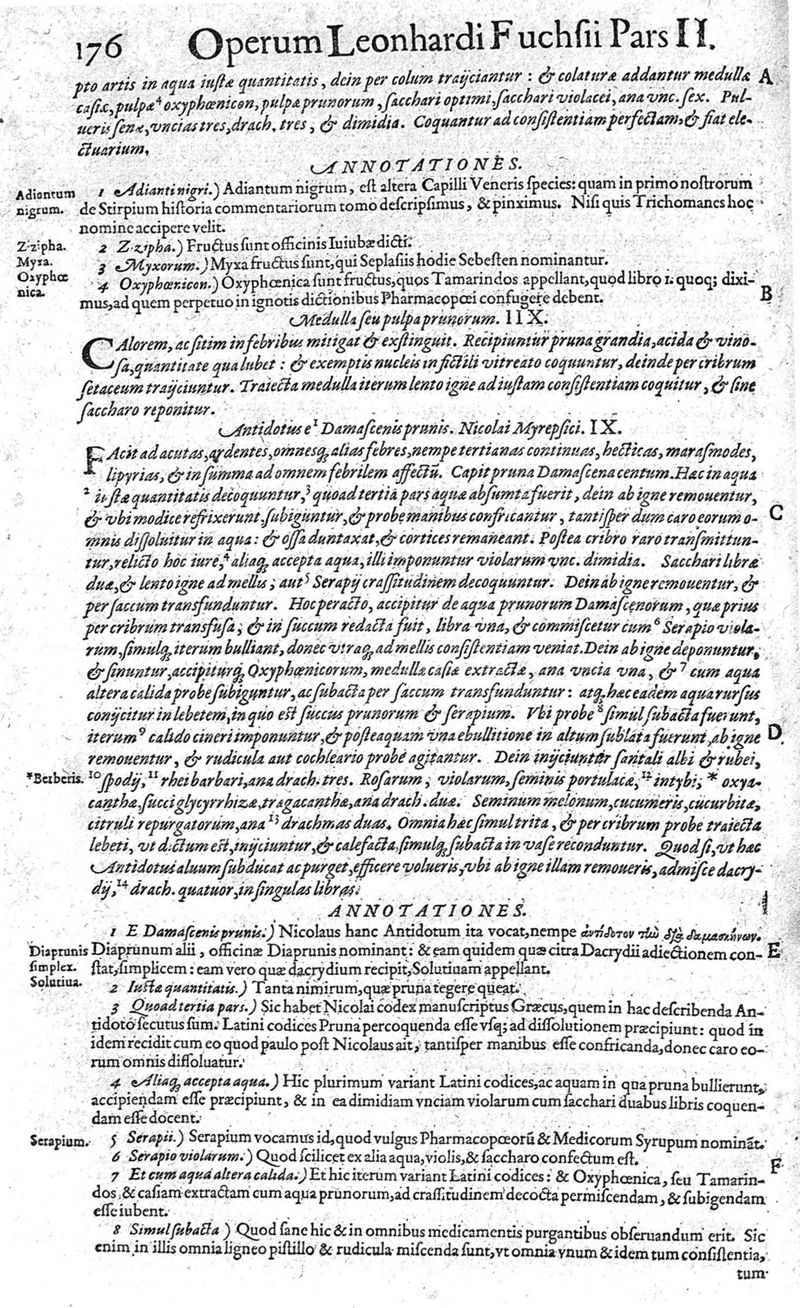 176 Operum Leonhardi Fuchſii Pars II.
pto artis in aqua iuſtæ quantitatis, dein per colum traijciantur : & colaturæ addantur medullæ A
caſiæ, pulpæ⁴ oxyphœnicon, pulpæ prunorum, ſacchari optimi, ſacchari violacei, ana vnc. ſex. Pul-
ueris ſenæ, vncias tres, drach. tres, & dimidia. Coquantur ad conſiſtentiam perfectam, & fiat ele-
ctuarium,
ANNOTATIONES.
Adiantum nigrum.
1 Adianti nigri.) Adiantum nigrum, eſt altera Capilli Veneris ſpecies: quam in primo noſtrorum
de Stirpium hiſtoria commentariorum tomo deſcripſimus, & pinximus. Niſi quis Trichomanes hoc
nomine accipere velit.
Zizipha.
2 Zizipha.) Fructus ſunt officinis Iuiubæ dicti.
Myxa.
3 Myxorum.) Myxa fructus ſunt, qui Seplaſiis hodie Sebeſten nominantur.
Oxyphœ
nica.
4 Oxyphœnicon.) Oxyphœnica ſunt fructus, quos Tamarindos appellant, quod libro 1. quoq; dixi-
mus, ad quem perpetuo in ignotis dictionibus Pharmacopœi confugere debent. B
Medulla ſeu pulpa prunorum. IIX.
CAlorem, ac ſitim in febribus mitigat & exſtinguit. Recipiuntur pruna grandia, acida & vino-
ſa, quantitate qua lubet : & exemptis nucleis in fictili vitreato coquuntur, deinde per cribrum
ſetaceum traijciuntur. Traiecta medulla iterum lento igne ad iuſtam conſiſtentiam coquitur, & ſine
ſaccharo reponitur.
Antidotus e¹ Damaſcenis prunis. Nicolai Myrepſici. IX.
FAcit ad acutas, ardentes, omneſq; alias febres, nempe tertianas continuas, hecticas, maraſmodes,
lipyrias, & in ſumma ad omnem febrilem affectū. Capit pruna Damaſcena centum. Hæc in aqua
² iuſtæ quantitatis decoquuntur,³ quoad tertia pars aquæ abſumta fuerit, dein ab igne remouentur,
& vbi modice refrixerunt, ſubiguntur, & probe manibus confricantur, tantiſper dum caro eorum o- C
mnis diſſoluitur in aqua : & oſſa duntaxat, & cortices remaneant. Poſtea cribro raro tranſmittun-
tur, relicto hoc iure,⁴ aliaq; accepta aqua, illi imponuntur violarum vnc. dimidia. Sacchari libræ
duæ, & lento igne ad mellis, aut⁵ Serapij craſſitudinem decoquuntur. Dein ab igne remouentur, &
per ſaccum transfunduntur. Hoc peracto, accipitur de aqua prunorum Damaſcenorum, quæ prius
per cribrum transfuſa, & in ſuccum redacta fuit, libra vna, & commiſcetur cum⁶ Serapio viola-
rum, ſimulq; iterum bulliant, donec vtraq; ad mellis conſiſtentiam veniat. Dein ab igne deponuntur,
& ſinuntur, accipiturq; Oxyphœnicorum, medullæ caſiæ extractæ, ana vncia vna, &⁷ cum aqua
altera calida probe ſubiguntur, ac ſubacta per ſaccum transfunduntur : atq; hæc eadem aqua rurſus
conijcitur in lebetem, in quo eſt ſuccus prunorum & ſerapium. Vbi probe⁸ ſimul ſubacta fuerunt,
iterum⁹ calido cineri imponuntur, & poſteaquam vna ebullitione in altum ſublata fuerunt, ab igne D
remouentur, & rudicula aut cochleario probe agitantur. Dein inijciuntur ſantali albi & rubei,
*Berberis.
¹⁰ſpodij,¹¹ rhei barbari, ana drach. tres. Roſarum, violarum, ſeminis portulacæ,¹² intybi, * oxya-
canthæ, ſucci glycyrrhizæ, tragacanthæ, ana drach. duæ. Seminum melonum, cucumeris, cucurbitæ,
citruli repurgatorum, ana¹³ drachmas duas. Omnia hæc ſimul trita, & per cribrum probe traiecta
lebeti, vt dictum eſt, inijciuntur, & calefacta, ſimulq; ſubacta in vaſe reconduntur. Quod ſi, vt hæc
Antidotus aluum ſubducat ac purget, efficere volueris, vbi ab igne illam remoueris, admiſce dacry-
dij,¹⁴ drach. quatuor, in ſingulas libras.
ANNOTATIONES.
1 E Damaſcenis prunis.) Nicolaus hanc Antidotum ita vocat, nempe ἀντίδοτον τὴν διὰ δαμασκήνων.
Diaprunis ſimplex.
Solutiua.
Diaprunum alii, officinæ Diaprunis nominant: & eam quidem quæ citra Dacrydii adiectionem con- E
ſtat, ſimplicem: eam vero quæ dacrydium recipit, Solutiuam appellant.
2 Iuſtæ quantitatis.) Tanta nimirum, quæ pruna tegere queat.
3 Quoad tertia pars.) Sic habet Nicolai codex manuſcriptus Græcus, quem in hac deſcribenda An-
tidoto ſecutus ſum. Latini codices Pruna percoquenda eſſe vſq; ad diſſolutionem præcipiunt: quod in
idem recidit cum eo quod paulo poſt Nicolaus ait, tantiſper manibus eſſe confricanda, donec caro eo-
rum omnis diſſoluatur.
4 Aliaq; accepta aqua.) Hic plurimum variant Latini codices, ac aquam in qua pruna bullierunt,
accipiendam eſſe præcipiunt, & in ea dimidiam vnciam violarum cum ſacchari duabus libris coquen-
dam eſſe docent.
Serapium.
5 Serapii.) Serapium vocamus id, quod vulgus Pharmacopœorū & Medicorum Syrupum nomināt.
6 Serapio violarum.) Quod ſcilicet ex alia aqua, violis, & ſaccharo confectum eſt. F
7 Et cum aqua altera calida.) Et hic iterum variant Latini codices: & Oxyphœnica, ſeu Tamarin-
dos & caſiam extractam cum aqua prunorum, ad craſſitudinem decocta permiſcendam, & ſubigendam
eſſe iubent.
8 Simul ſubacta ) Quod ſane hic & in omnibus medicamentis purgantibus obſeruandum erit. Sic
enim in illis omnia ligneo piſtillo & rudicula miſcenda ſunt, vt omnia vnum & idem tum conſiſtentia,
tum